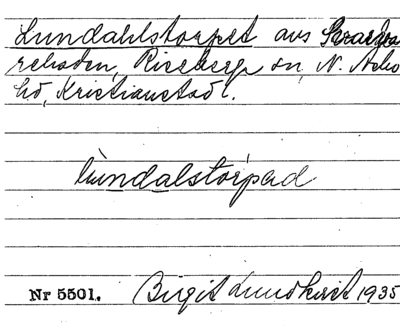 Lundahlstorpet avs Svarva
rehoden, Riseberga sn, N. Åsbo
hd, Kristianstad l.
lùndalstórpəd
Nr 5501. Birgit Lundkvist 1935